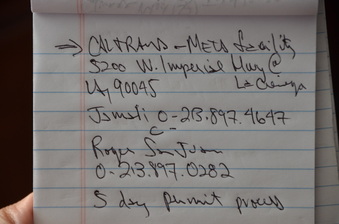 ⇒ CALTRANS - METS facility
5200 W. Imperial Hwy @
LA, 90045 La Cienega
Jsmali O-213.897.4647
C-
Roger San Juan
O-213.897.0282
5 day permit process